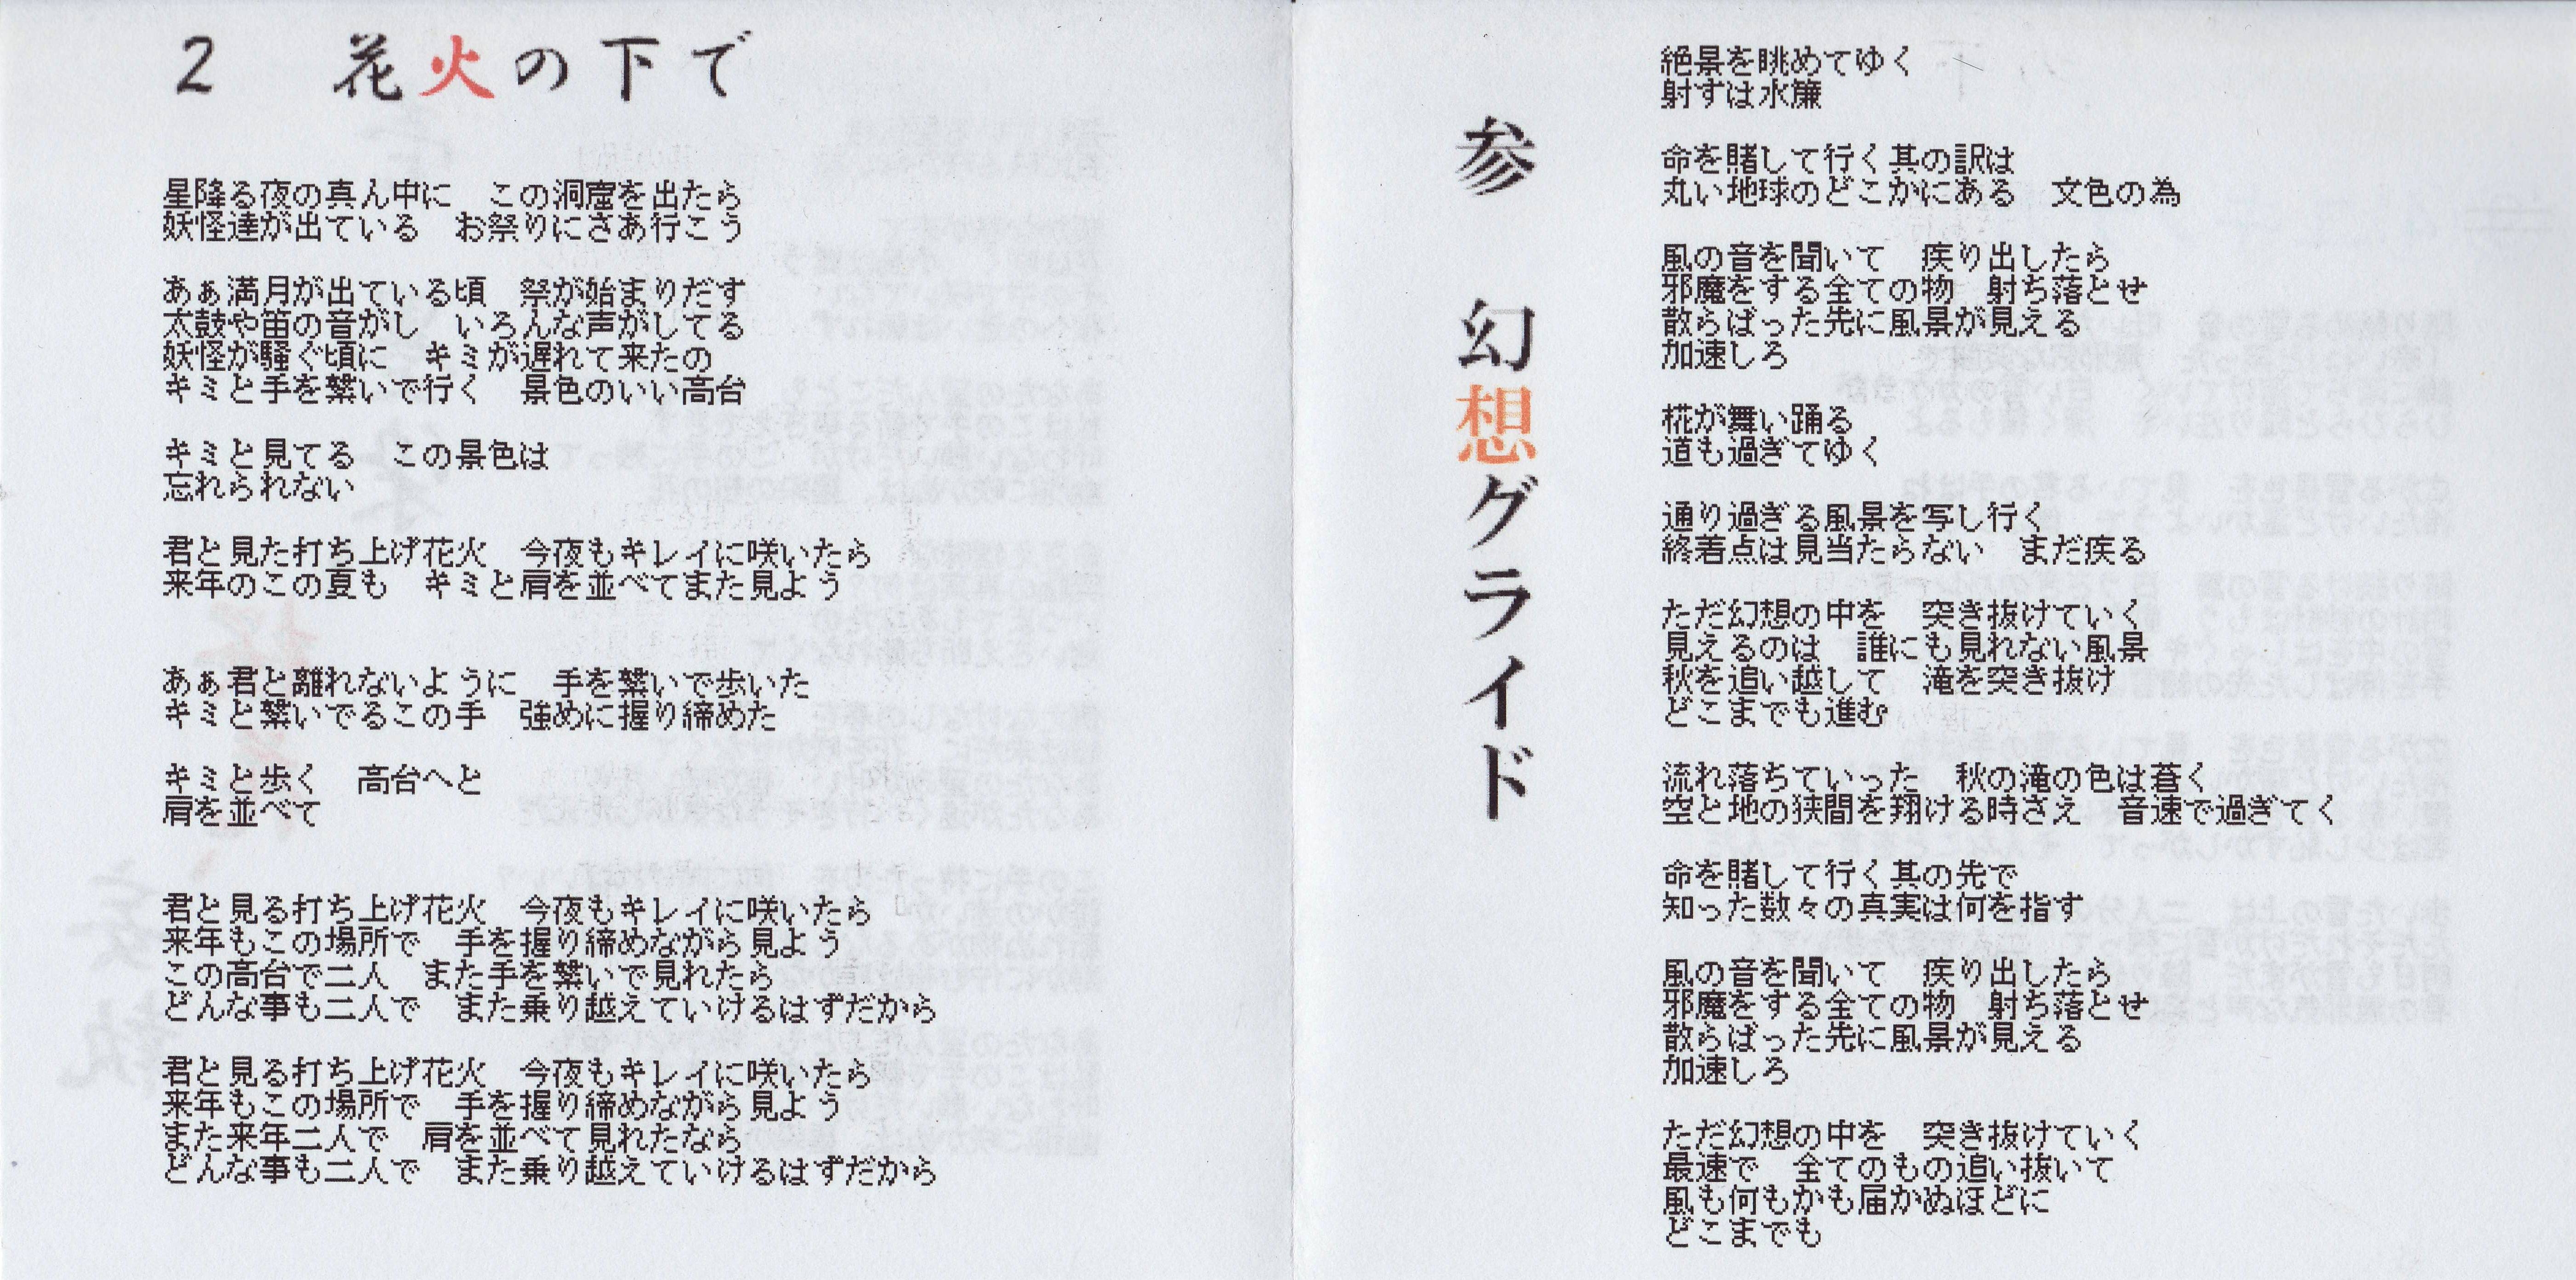 2　花火の下で
星降る夜の真ん中に　この洞窟を出たら
妖怪達が出ている　お祭りにさあ行こう
あぁ満月が出ている頃　祭が始まりだす
太鼓や笛の音がし　いろんな声がしてる
妖怪が騒ぐ頃に　キミが遅れて来たの
キミと手を繋いで行く　景色のいい高台
キミと見てる　この景色は
忘れられない
君と見た打ち上げ花火　今夜もキレイに咲いたら
来年のこの夏も　キミと肩を並べてまた見よう
あぁ君と離れないように　手を繋いで歩いた
キミと繋いでるこの手　強めに握り締めた
キミと歩く　高台へと
肩を並べて
君と見る打ち上げ花火　今夜もキレイに咲いたら
来年もこの場所で　手を握り締めながら見よう
この高台で二人　また手を繋いで見れたら
どんな事も二人で　また乗り越えていけるはずだから
君と見る打ち上げ花火　今夜もキレイに咲いたら
来年もこの場所で　手を握り締めながら見よう
また来年二人で　肩を並べて見れたなら
どんな事も二人で　また乗り越えていけるはずだから
参　幻想グライド
絶景を眺めてゆく
射すは水簾
命を賭して行く其の訳は
丸い地球のどこかにある　文色の為
風の音を聞いて　疾り出したら
邪魔をする全ての物　射ち落とせ
散らばった先に風景が見える
加速しろ
椛が舞い踊る
道も過ぎてゆく
通り過ぎる風景を写し行く
終着点は見当たらない　まだ疾る
ただ幻想の中を　突き抜けていく
見えるのは　誰にも見れない風景
秋を追い越して　滝を突き抜け
どこまでも進む
流れ落ちていった　秋の滝の色は蒼く
空と地の狭間を翔ける時さえ　音速で過ぎてく
命を賭して行く其の先で
知った数々の真実は何を指す
風の音を聞いて　疾り出したら
邪魔をする全ての物　射ち落とせ
散らばった先に風景が見える
加速しろ
ただ幻想の中を　突き抜けていく
最速で　全てのもの追い抜いて
風も何もかも届かぬほどに
どこまでも